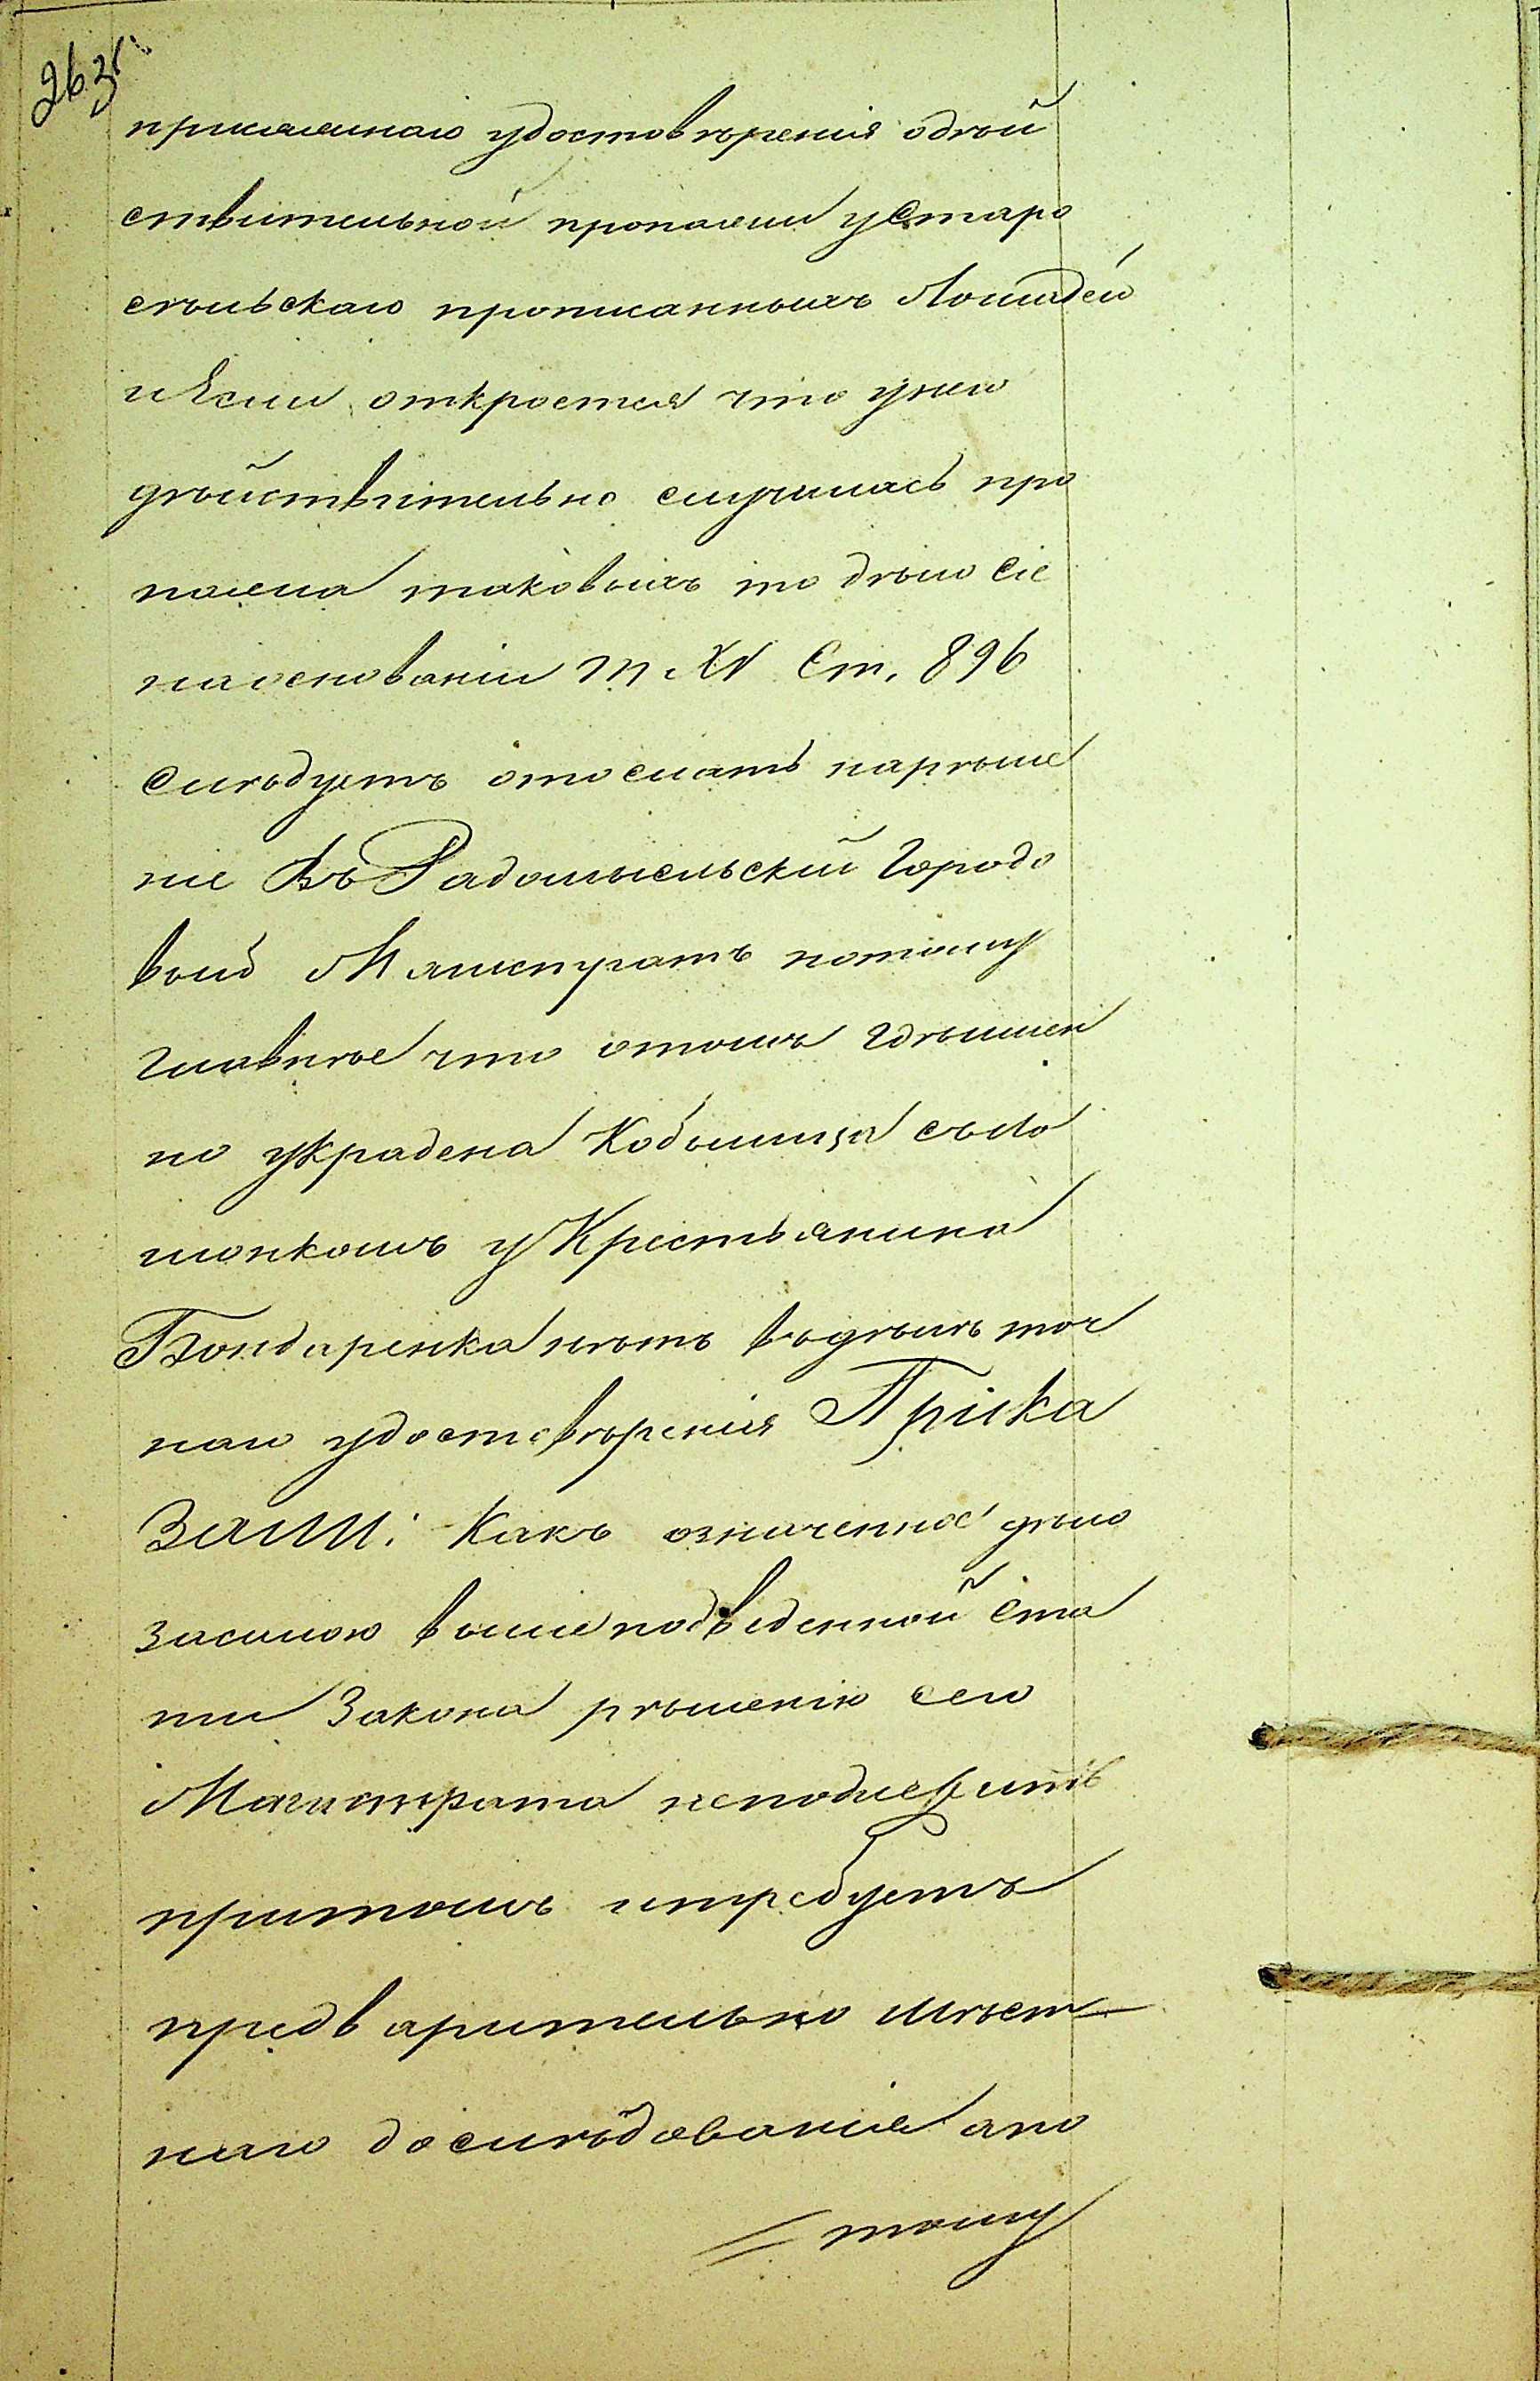 26 зв.
присяжнаго удостовѣренія одѣй
ствительной пропажи уСтаро
сѣльскаго прописанныхъ Лошадей
иЕсли откроется что унего
дѣйствительно случилась про
пажа таковыхъ то дѣло Сіе
наосновании Т. XV Ст. 896
Слѣдуетъ отослать нарѣше
ніе ВъРадомысльскій Городо
вый Магистратъ потому
главнѣе что отомъ гдѣимен
но украдена Кобылица съло
шонкомъ уКрестьянина
Бондаренка нѣтъ въдѣлѣ точ
наго удостовѣренія Прика
Зали: Какъ означенное дѣло
засилою вышеподведенной Ста
тьи Закона рѣшенію сего
Магистрата неподлежитъ
притомъ итребуетъ
предварительно мѣст
наго дослѣдованія апо
тому